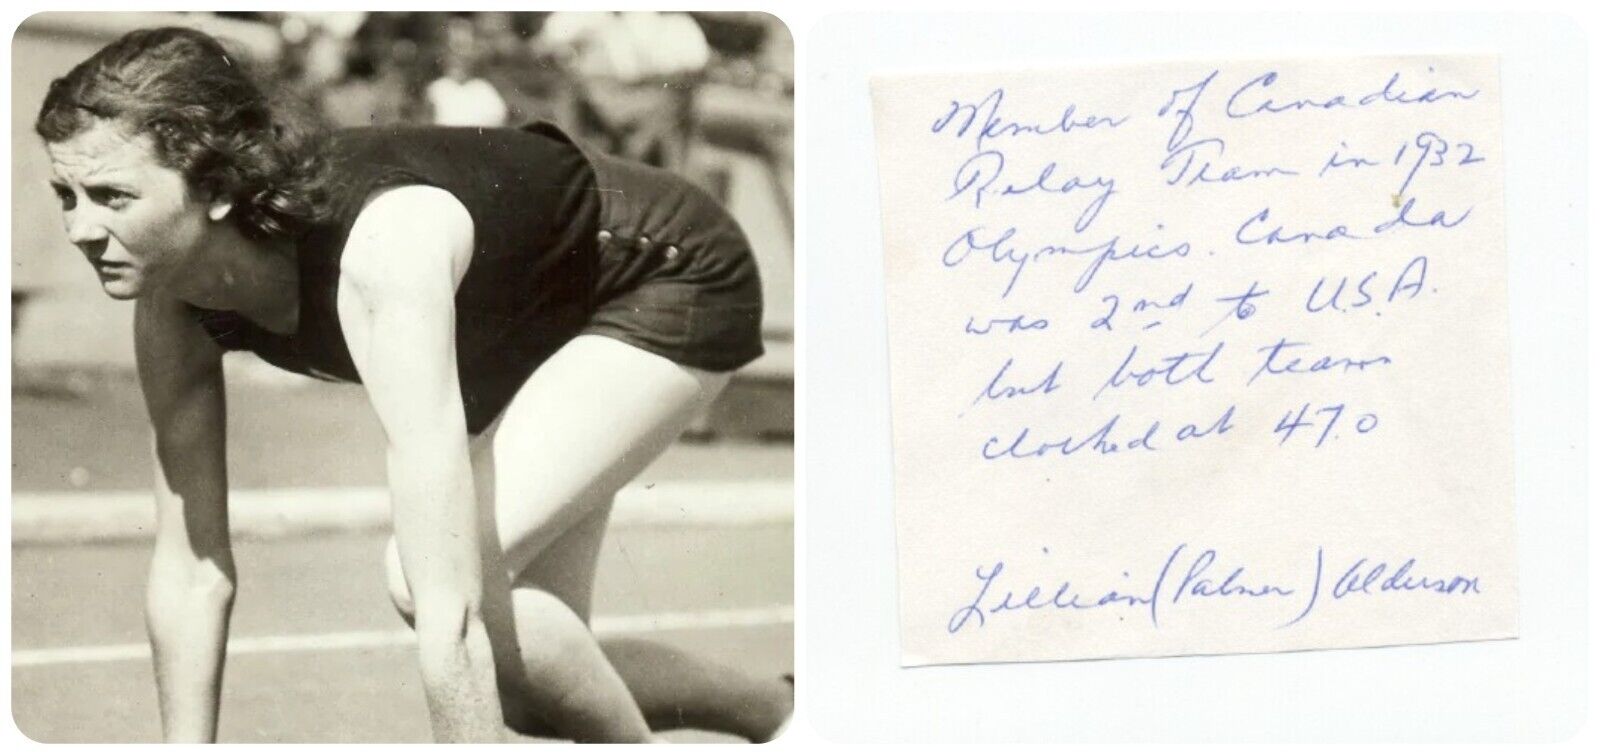 Member of Canadian
Relay Team in 1932
Olympics. Canada
was 2nd to U.S.A.
but both teams
clocked at 47.0
Lillian (Palmer) Alderson